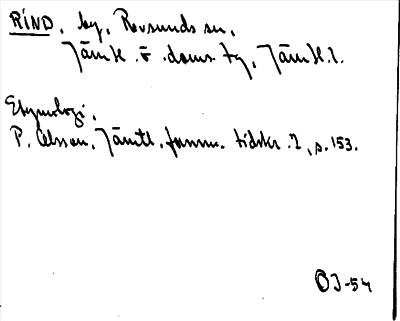 RIND, by, Revsunds sn,
Jämtl. ö. doms. tg, Jämtl. l.
Etymologi,
P. Olsson, Jämtl. fornm. tidskr. 2, s. 153.
OJ-54